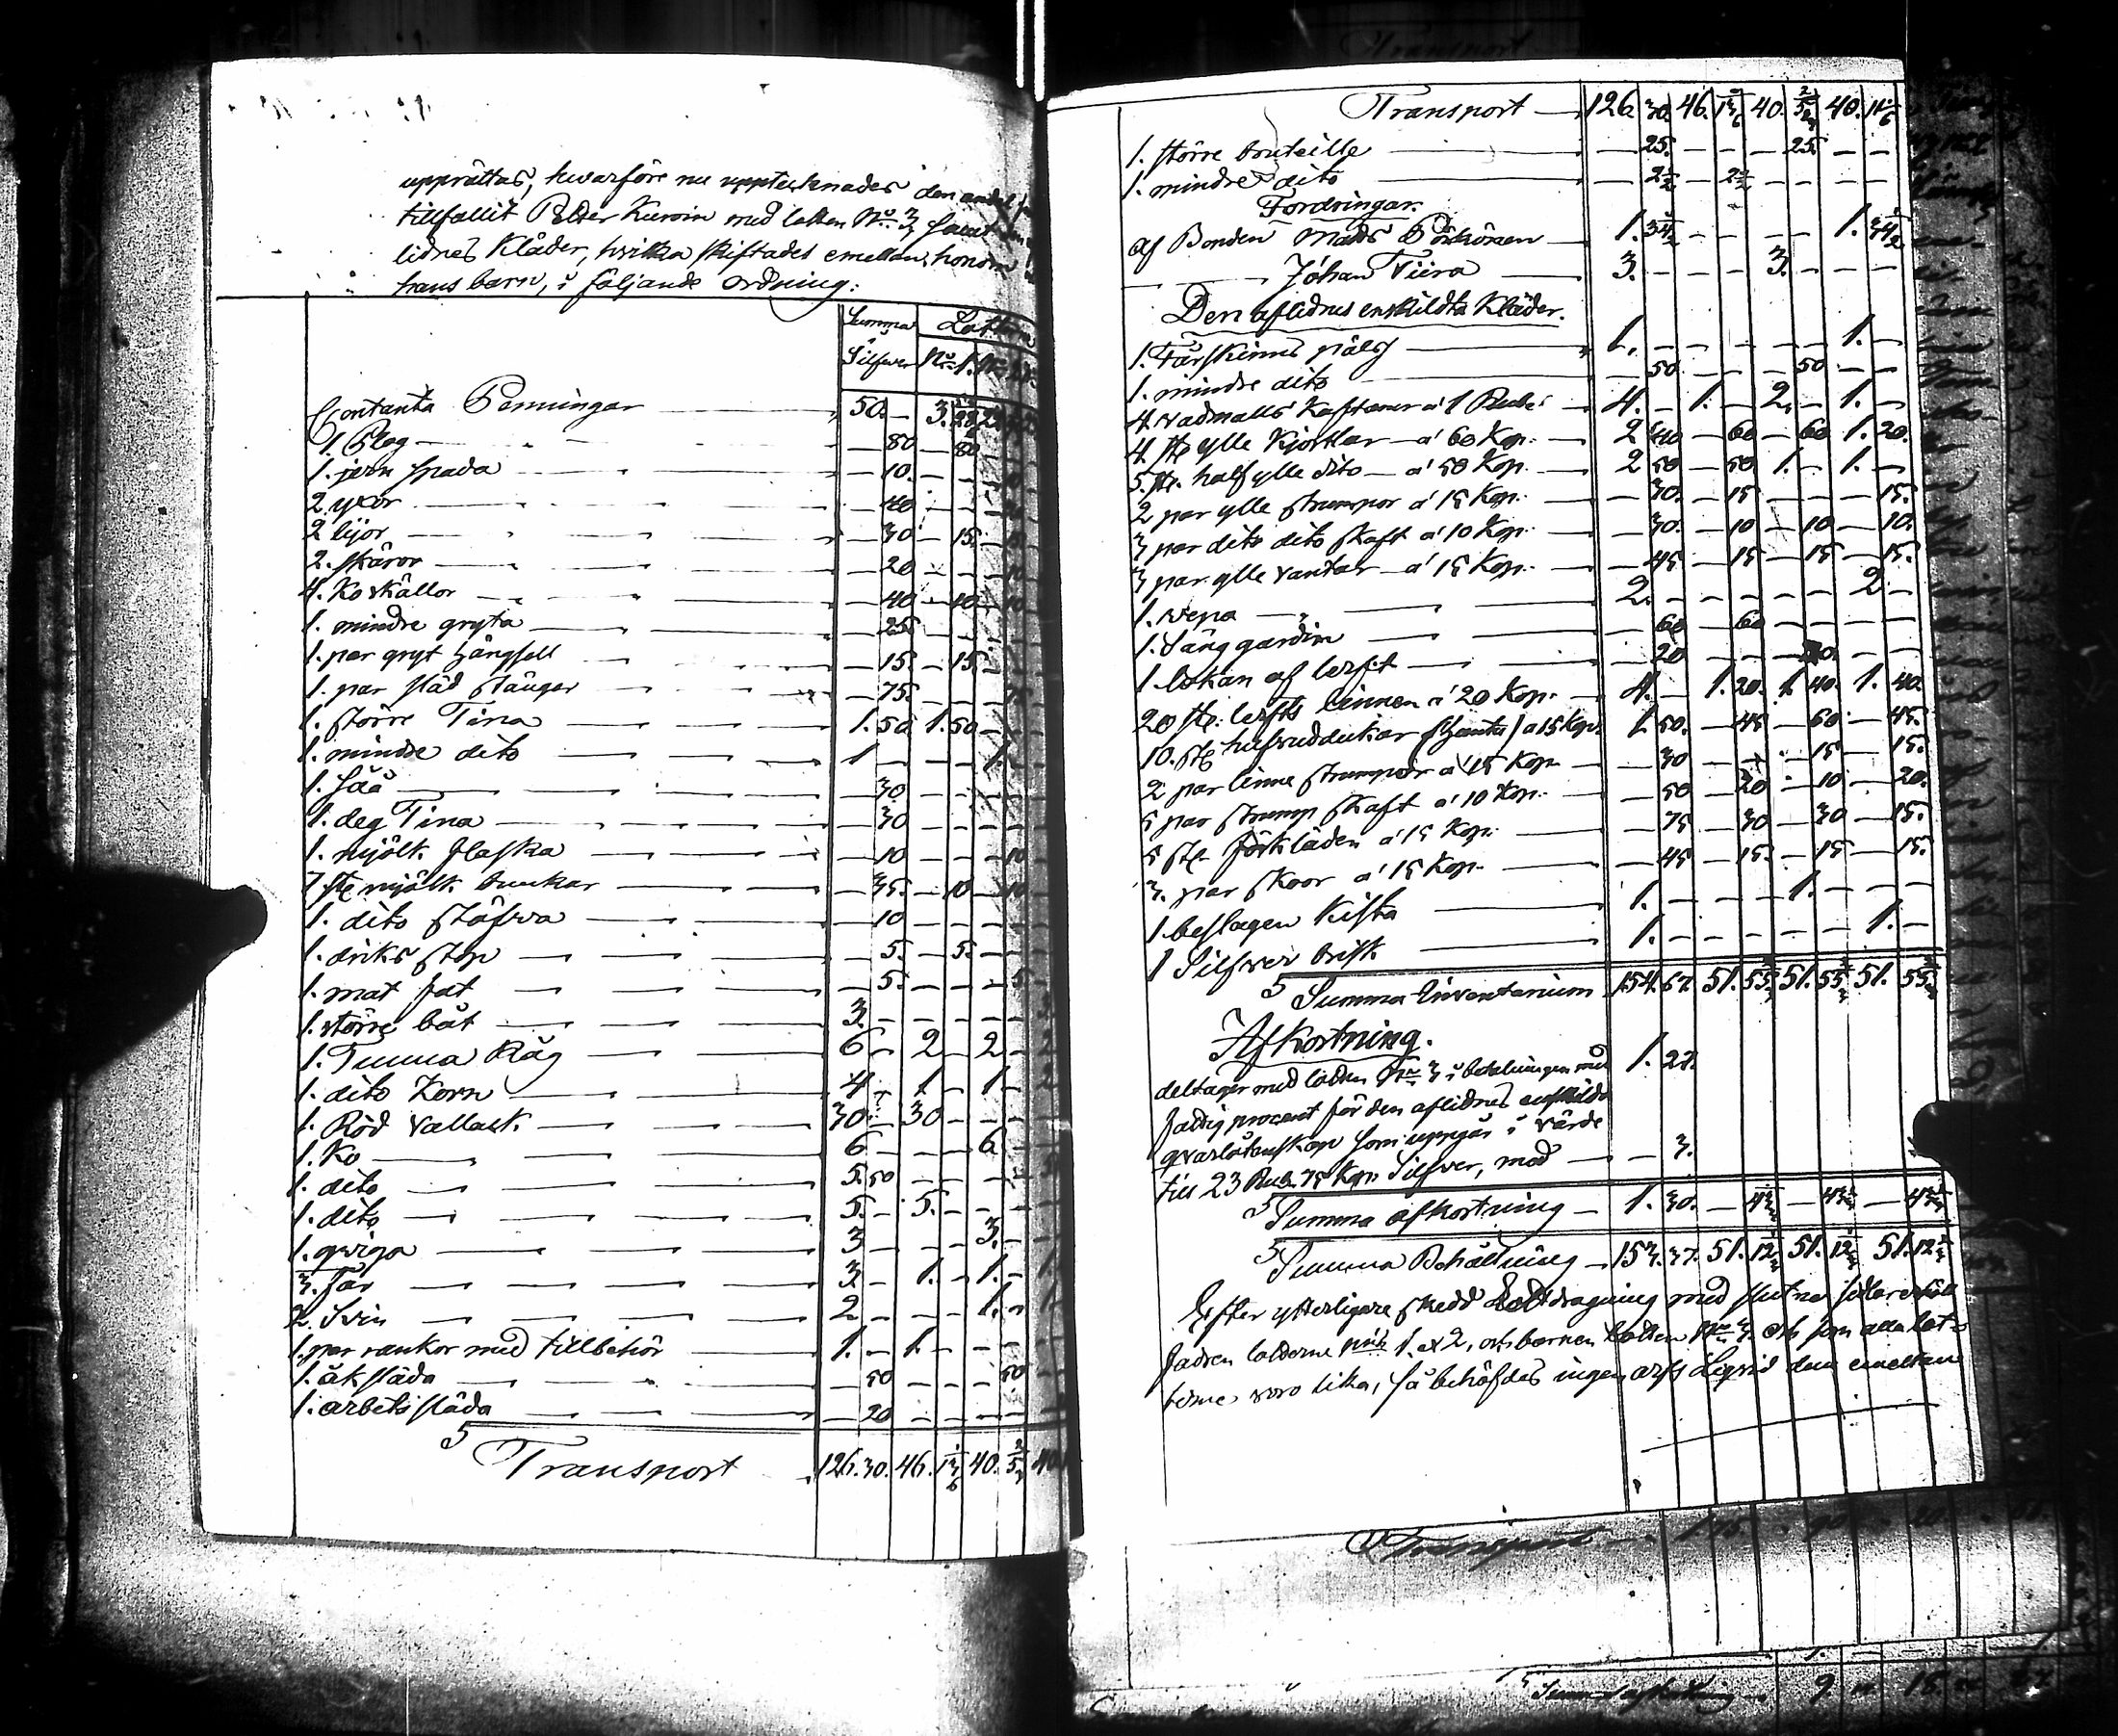 upprättas, hwarföre nu upptecknades den andel
tillfallit Peder Kuroin med lotten No. 3 samt
lidnes Kläder, hvilka skiftades emellan honom
hans barn, i följande ordning:
Summa Silfwer Lotten
No. 1.
Contanta Penningar 50. — 3.
1. Plog — 80 — 80
1. jern spada — 10. — —
2. yxor — 40
2 lijor — 30 — 15.
2. skäror — 20
4. Ko skällor — 40 — 10 — 10
1. mindre gryta — 25
1. par gryt hängsell — 15. — 15.
1. par släd stänger — 75.
1. större Tina 1. 50 1. 50
1. mindre dito 1 — — — 1.
1. såå — 30
1. deg Tina — 30
1. mjölk flaska — 10 — — — 10
7 ste mjölk bunkar — 35. — 10 — 10
1. dito stäfwa — 10
1. driks stop — 5. — 5.
1. mat fat — 5. — — — 5
1. större båt 3.
1. Tunna Råg 6 — 2 — 2
1. dito Korn 4 — 1 — 1
1. Röd vallack 30 — 30
1. Ko 6 — — — 6
1. dito 5. 50
1. dito 5. — 5.
1. qwiga 3 — — — 3.
3. Får 3 — 1. — 1.
2. Svin 2 — — — 1.
1. par rankor med tillbehör 1. — 1.
1. åk släda — 50 — — — 50
1. arbets släda — 20
Transport 126. 30. 46. 1 3/6 40. 5 40
Transport 126. 30. 46. 40. 40.
1. större bouteille — 25. — — — 25. — —
1. mindre dito — 2 1/2 — 2 1/2 — — — —
Fordringar.
af Bonden Mats 1. 34 1/2 — — — — 1. 34 1/2
— Johan Tiira 3. — — — 3. — — —
Den aflidnes enskildta Kläder.
1. Fårskinns päls 1. — — — — — 1. —
1. mindre dito — 50 — — — 50 — —
4. vadmalls Kaftaner a' 1 Rub: 4. — 1. — 2. — 1. —
4. ste ylle Kjortlar — a' 60 Kop. 2 40 — 60 — 60 1. 20.
5. ste. half ylle dito — a' 50 Kop. 2 50 — 50 1. — 1. —
2 par ylle strumpor a' 15 Kop. — 30. — 15 — — — 15.
3 par dito dito skaft a' 10 Kop. — 30. — 10 — 10 — 10.
3 par ylle vantar — a' 15 Kop. — 45 — 15 — 15 — 15.
1. wepa 2. — — — — — 2 —
1. Säng gardin — 60 — 60 — — — —
1 lakan af lerfit — 20 — — — 20. — —
20 ste: lerfts linnen a' 20 Kop. 4. — 1. 20. 1. 40. 1. 40.
10. ste hufvuddukar a 15 Kop. 1. 50. — 45 — 60 — 45.
2 par linne strumpor a' 15 Kop — 30 — — — 15 — 15.
5 par strump skaft a' 10 Kop. — 50 — 20 — 10 — 20.
5 ste förkläden a' 15 Kop. — 75 — 30 — 30 — 15.
3. par skoor a' 15 Kop. — 45 — 15. — 15 — 15.
1. beslagen Kista 1. — — — 1. — — —
1 Silfwer brisk 1. — — — — — 1. —
Summa Inventarium 154. 67. 51. 55 51. 55 51. 55
Afkortning.
deltager med lotten No. 3 i betalningen med 1. 27.
fattig procent för den aflidnes enskilda
qvarlåtenskap som uppgår i värde
till 23 Rub. 75 Kop. Silfver, med — 3.
Summa afkortning 1. 30. — 43 — 43 — 43
Summa Behållning 153. 37. 51. 12 51. 12 51. 12
Efter ytterligare skedd Lottdragning med slutna sedlar erhöll
fadren lotterne No 1. et 2, och barnen lotten No. 3. och som alla lot-
terne voro lika, så behöfdes ingen arfs Legvid dem emellan
Transport